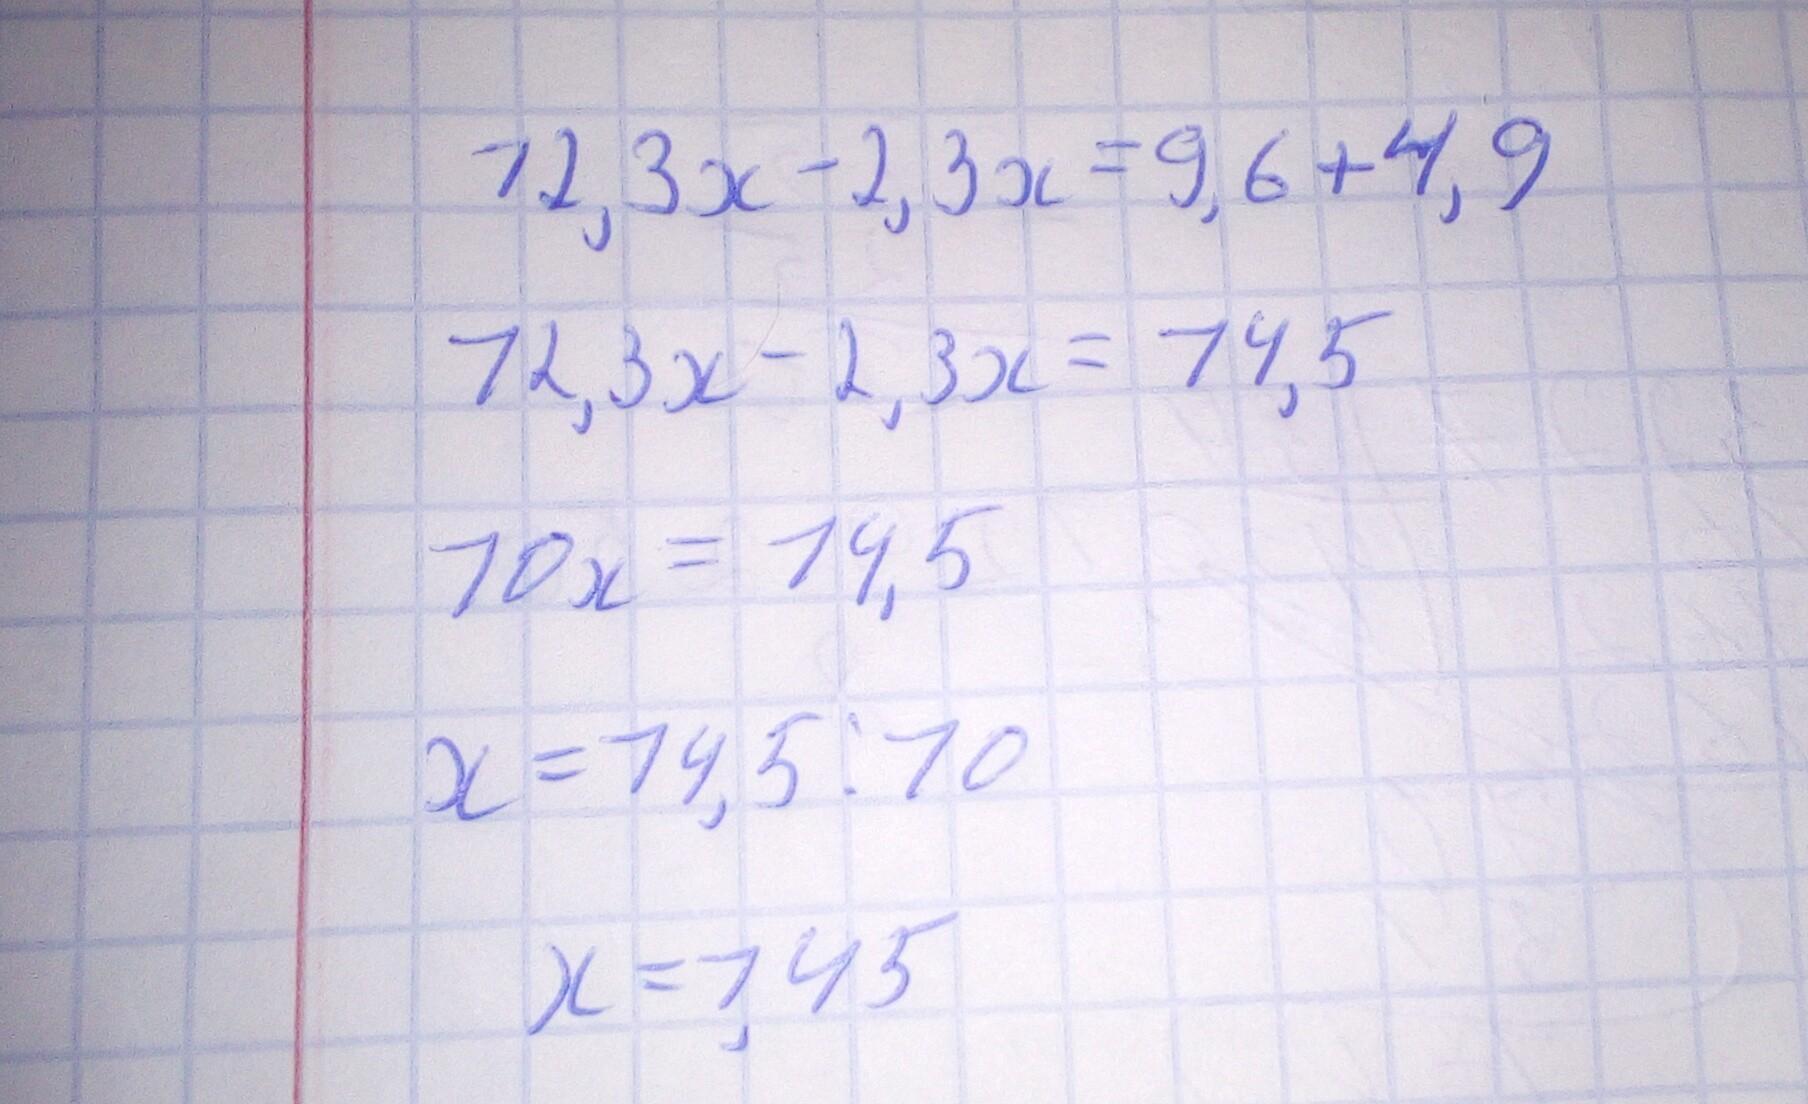 12,3x-2,3x=9,6+4,9
12,3x-2,3x=14,5
10x=14,5
x=14,5:10
x=1,45